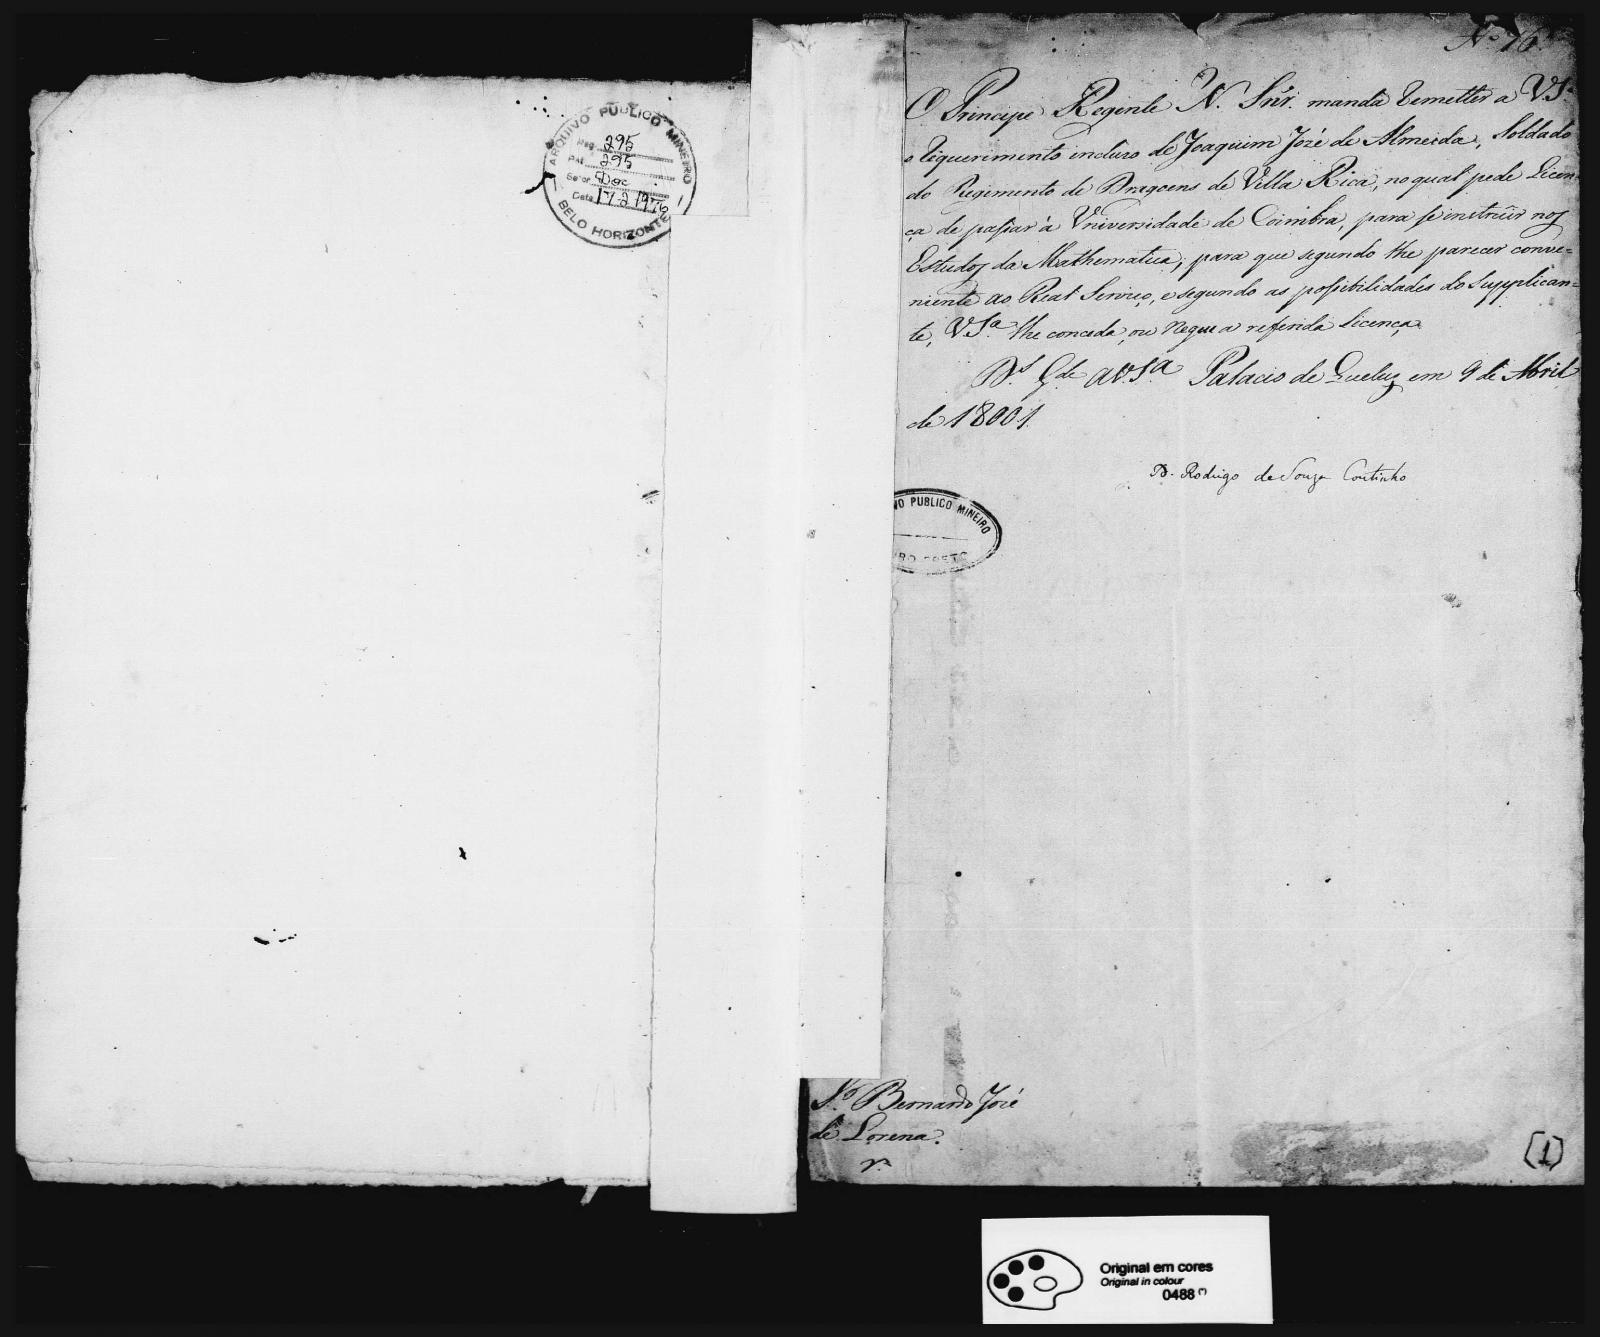 ARQUIVO PUBLICO MINEIRO
Reg. 295
Pat. 295
Setor Doc
Data 17-2-1976
BELO HORIZONTE
Nº 76
O Principe Regente N. Snr. manda remetter a VSª
o requerimento incluso de Joaquim José de Almeida, Soldado
do Regimento de Dragoens de Villa Rica, no qual pede Licen=
ça de passar á Universidade de Coimbra, para se instruir nos
Estudos da Mathematica, para que segundo lhe parecer conve=
niente ao Real Serviço, e segundo as possibilidades do Supplican=
te, VSª lhe conceda, ou negue a referida licença.
Dˢ Gᵈᵉ a VSª Palacio de Queluz em 9 de Abril
de 1801.
D. Rodrigo de Souza Coutinho
VO PUBLICO MINEIRO
RO PRETO
Sʳ Bernardo José
de Lorena.
(1)
Original em cores
Original in colour
0488 (*)